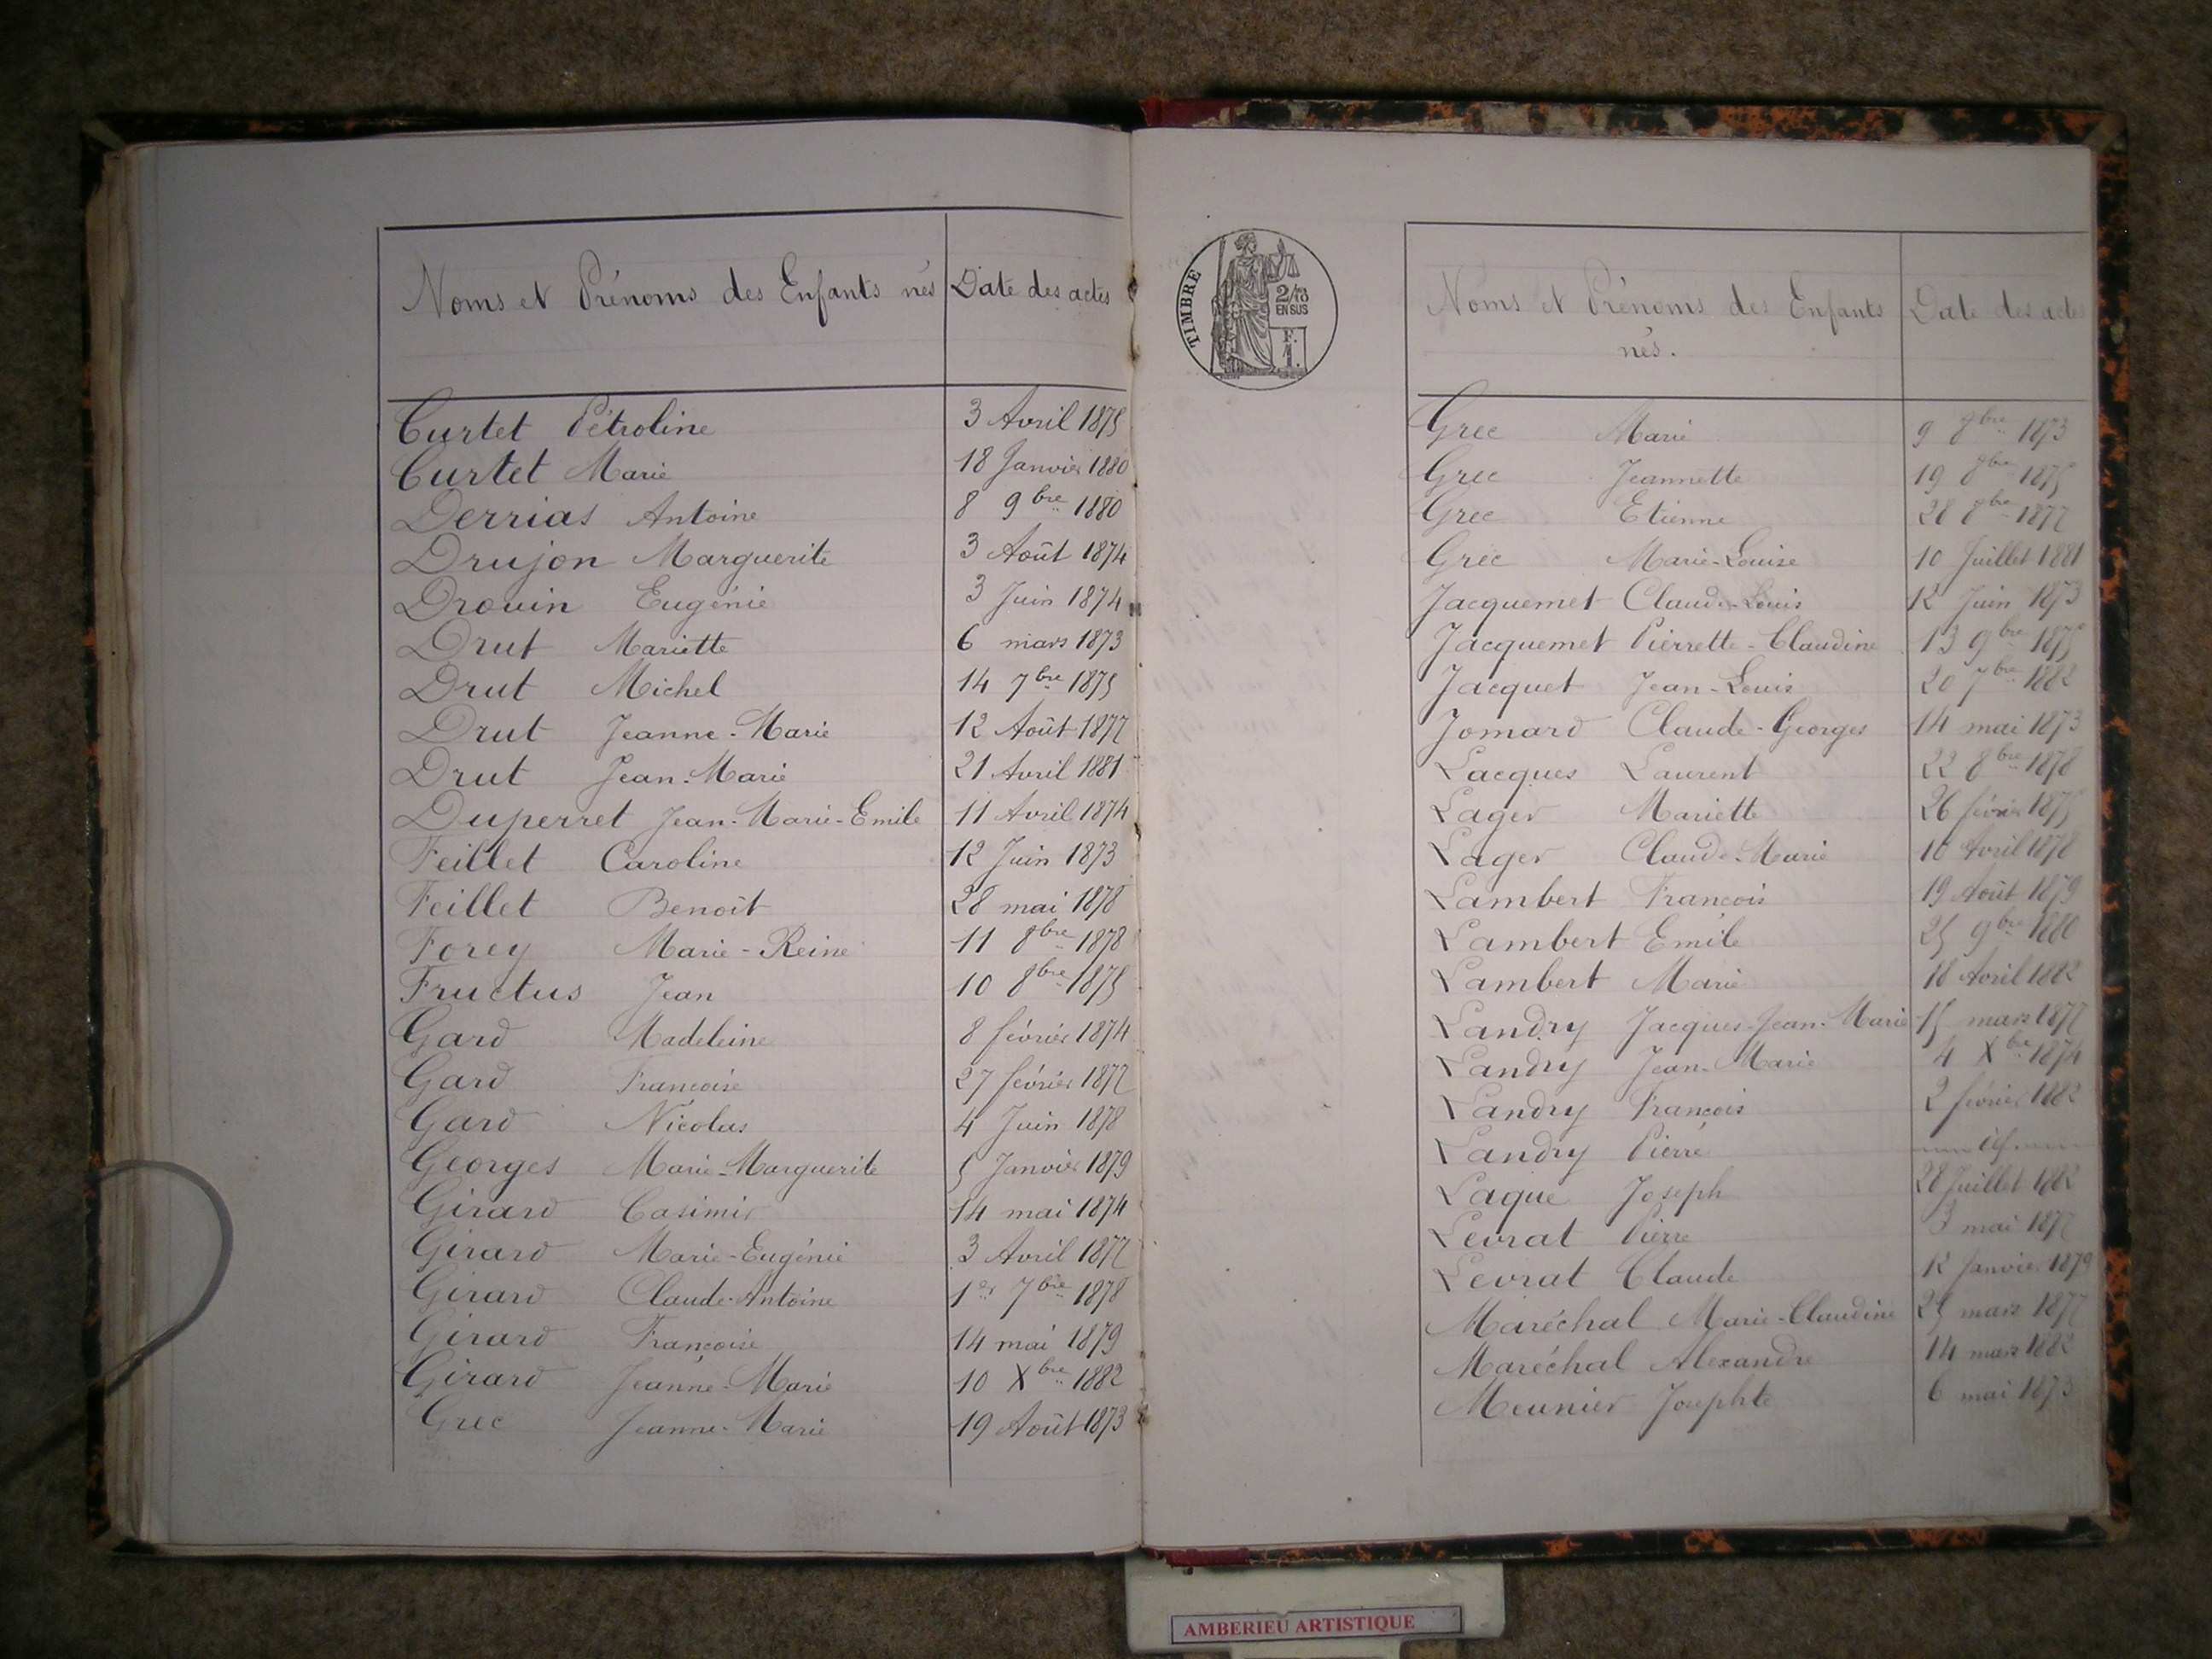 Noms et Prénoms des Enfants nés Date des actes
Curtet Pétroline 3 Avril 1875
Curtet Marie 18 Janvier 1880
Derrias Antoine 8 9bre 1880
Drujon Marguerite 3 Août 1874
Drouin Eugénie 3 Juin 1874
Drut Mariette 6 mars 1873
Drut Michel 14 7bre 1875
Drut Jeanne-Marie 12 Août 1877
Drut Jean-Marie 21 Avril 1881
Duperret Jean-Marie-Emile 11 Avril 1874
Feillet Caroline 12 Juin 1873
Feillet Benoît 28 mai 1878
Forey Marie-Reine 11 8bre 1878
Fructus Jean 10 8bre 1875
Gard Madeleine 8 février 1874
Gard Francoise 27 février 1877
Gard Nicolas 4 Juin 1878
Georges Marie-Marguerite 5 Janvier 1879
Girard Casimir 14 mai 1874
Girard Marie-Eugénie 3 Avril 1877
Girard Claude-Antoine 1er 7bre 1878
Girard Françoise 14 mai 1879
Girard Jeanne-Marie 10 Xbre 1882
Grec Jeanne-Marie 19 Août 1873
TIMBRE
2/10
EN SUS
F.
1.
Noms et Prénoms des Enfants Date des actes
nés.
Grec Marie 9 8bre 1873
Grec Jeannette 19 8bre 1875
Grec Etienne 28 8bre 1877
Grec Marie-Louise 10 Juillet 1881
Jacquemet Claude-Louis 12 Juin 1873
Jacquemet Pierrette-Claudine 13 9bre 1875
Jacquet Jean-Louis 20 7bre 1882
Jomard Claude-Georges 14 mai 1873
Lacques Laurent 22 8bre 1878
Lager Mariette 26 février 1875
Lager Claude-Marie 10 Avril 1878
Lambert Francois 19 Août 1879
Lambert Emile 25 9bre 1880
Lambert Marie 18 Avril 1882
Landry Jacques-Jean-Marie 15 mars 1877
Landry Jean-Marie 4 Xbre 1874
Landry Francois 2 février 1882
Landry Pierre
Laque Joseph 28 Juillet 1882
Levrat Pierre 3 mai 1877
Levrat Claude 12 Janvier 1879
Maréchal Marie-Claudine 25 mars 1877
Maréchal Alexandre 14 mars 1882
Meunier Josephte 6 mai 1873
AMBERIEU ARTISTIQUE